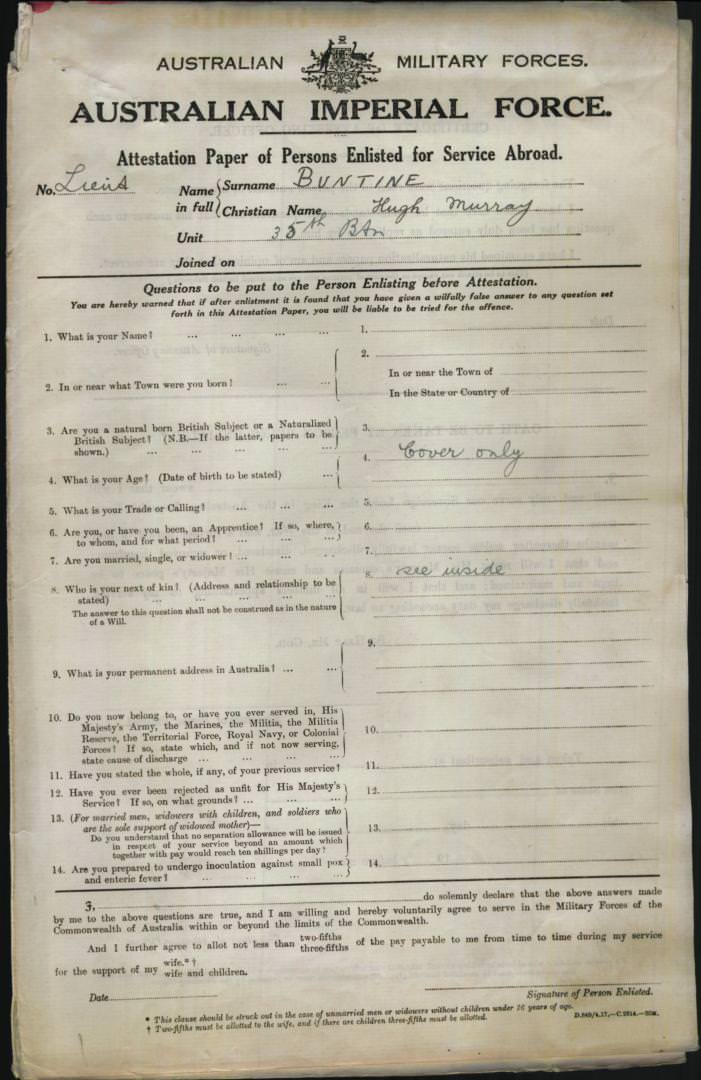 AUSTRALIAN MILITARY FORCES.
AUSTRALIAN IMPERIAL FORCE.
Attestation Paper of Persons Enlisted for Service Abroad.
No. Lieut
Name in full { Surname BUNTINE
Christian Name Hugh Murray
Unit 35th Btn
Joined on
Questions to be put to the Person Enlisting before Attestation.
You are hereby warned that if after enlistment it is found that you have given a wilfully false answer to any question set
forth in this Attestation Paper, you will be liable to be tried for the offence.
1. What is your Name? ... ... ... ... 1.
2. In or near what Town were you born? ... ... 2.
In or near the Town of
In the State or Country of
3. Are you a natural born British Subject or a Naturalized
British Subject? (N.B.—If the latter, papers to be
shown.) ... ... ... ... 3.
4. What is your Age? (Date of birth to be stated) ... 4. Cover only
5. What is your Trade or Calling? ... ... ... 5.
6. Are you, or have you been, an Apprentice? If so, where,
to whom, and for what period? ... ... ... 6.
7. Are you married, single, or widower? ... ... ... 7.
8. Who is your next of kin? (Address and relationship to be
stated) ... ... ... ... 8. see inside
The answer to this question shall not be construed as in the nature
of a Will.
9. What is your permanent address in Australia? ... ... 9.
10. Do you now belong to, or have you ever served in, His
Majesty's Army, the Marines, the Militia, the Militia
Reserve, the Territorial Force, Royal Navy, or Colonial
Forces? If so, state which, and if not now serving,
state cause of discharge ... ... ... 10.
11. Have you stated the whole, if any, of your previous service? 11.
12. Have you ever been rejected as unfit for His Majesty's
Service? If so, on what grounds? ... ... ... 12.
13. (For married men, widowers with children, and soldiers who
are the sole support of widowed mother)—
Do you understand that no separation allowance will be issued
in respect of your service beyond an amount which
together with pay would reach ten shillings per day? 13.
14. Are you prepared to undergo inoculation against small pox
and enteric fever? ... ... ... ... 14.
3, do solemnly declare that the above answers made
by me to the above questions are true, and I am willing and hereby voluntarily agree to serve in the Military Forces of the
Commonwealth of Australia within or beyond the limits of the Commonwealth.
And I further agree to allot not less than two-fifths three-fifths of the pay payable to me from time to time during my service
for the support of my wife.* † wife and children.
Date
Signature of Person Enlisted.
* This clause should be struck out in the case of unmarried men or widowers without children under 16 years of age.
† Two-fifths must be allotted to the wife, and if there are children three-fifths must be allotted.